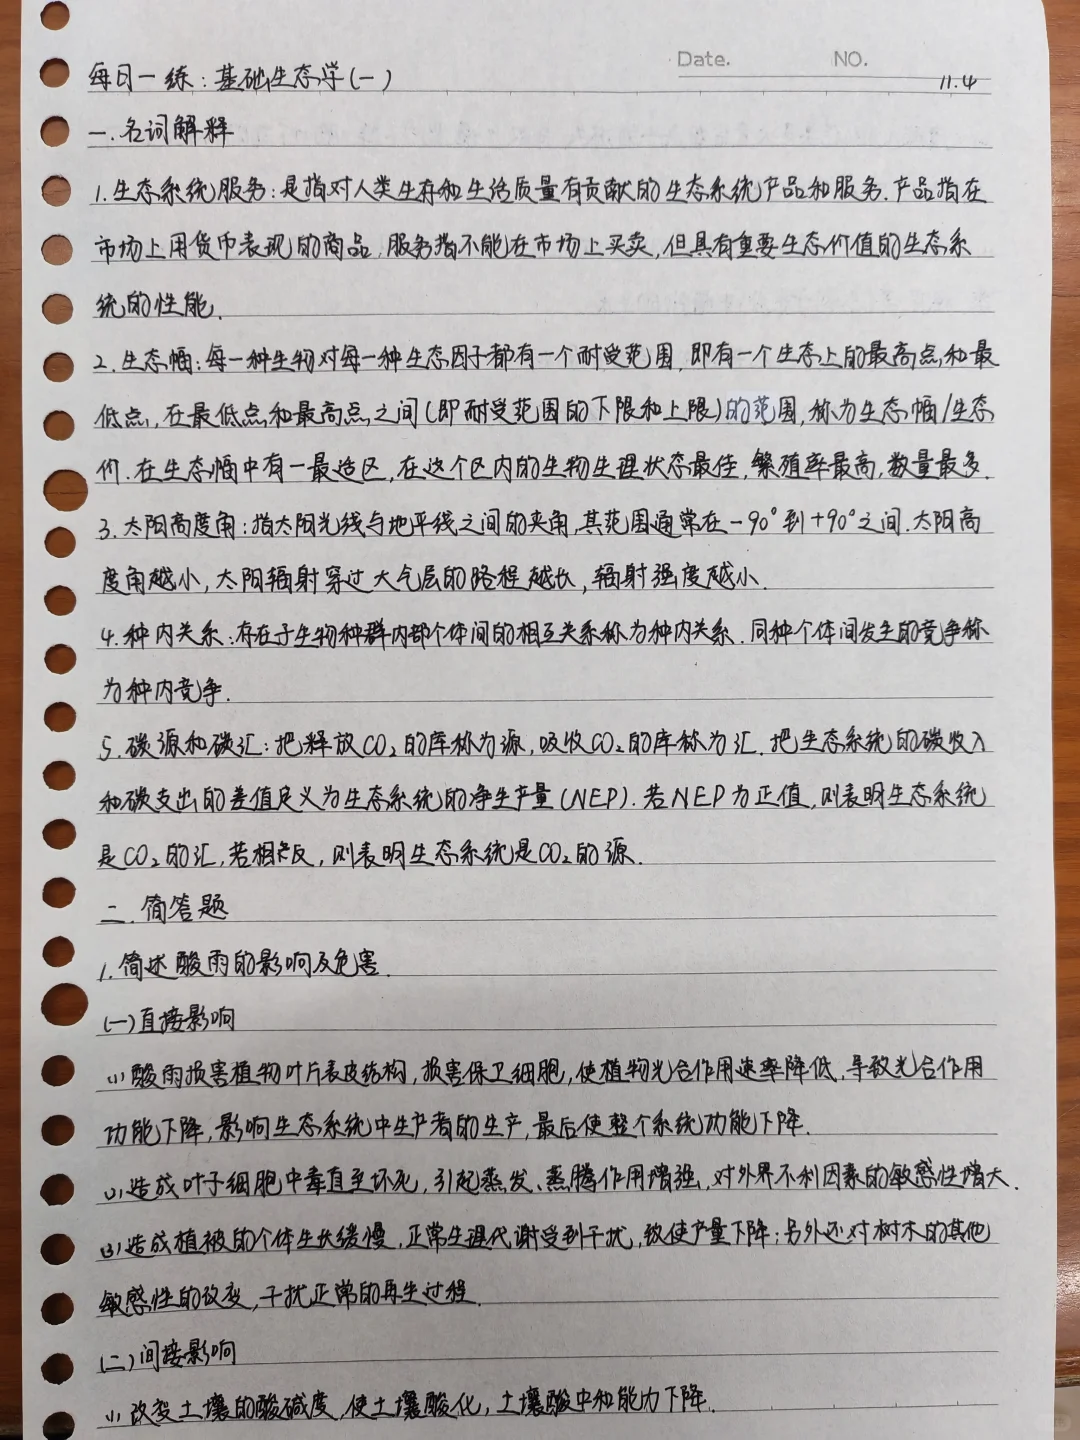 Date. NO.
每日一练:基础生态学(一) 11.4
一.名词解释
1.生态系统服务:是指对人类生存和生活质量有贡献的生态系统产品和服务.产品指在
市场上用货币表现的商品,服务指不能在市场上买卖,但具有重要生态价值的生态系
统的性能.
2.生态幅:每一种生物对每一种生态因子都有一个耐受范围,即有一个生态上的最高点和最
低点,在最低点和最高点之间(即耐受范围的下限和上限)的范围,称为生态幅/生态
价.在生态幅中有一最适区,在这个区内的生物生理状态最佳,繁殖率最高,数量最多.
3.太阳高度角:指太阳光线与地平线之间的夹角,其范围通常在-90°到+90°之间.太阳高
度角越小,太阳辐射穿过大气层的路程越长,辐射强度越小.
4.种内关系:存在于生物种群内部个体间的相互关系称为种内关系.同种个体间发生的竞争称
为种内竞争.
5.碳源和碳汇:把释放CO₂的库称为源,吸收CO₂的库称为汇.把生态系统的碳收入
和碳支出的差值定义为生态系统的净生产量(NEP).若NEP为正值,则表明生态系统
是CO₂的汇,若相反,则表明生态系统是CO₂的源.
二.简答题
1.简述酸雨的影响及危害.
(一)直接影响
(1)酸雨损害植物叶片表皮结构,损害保卫细胞,使植物光合作用速率降低,导致光合作用
功能下降,影响生态系统中生产者的生产,最后使整个系统功能下降.
(2)造成叶子细胞中毒直至坏死,引起蒸发、蒸腾作用增强,对外界不利因素的敏感性增大.
(3)造成植被的个体生长缓慢,正常生理代谢受到干扰,致使产量下降;另外还对树木的其他
敏感性的改变,干扰正常的再生过程.
(二)间接影响
(1)改变土壤的酸碱度,使土壤酸化,土壤酸中和能力下降.